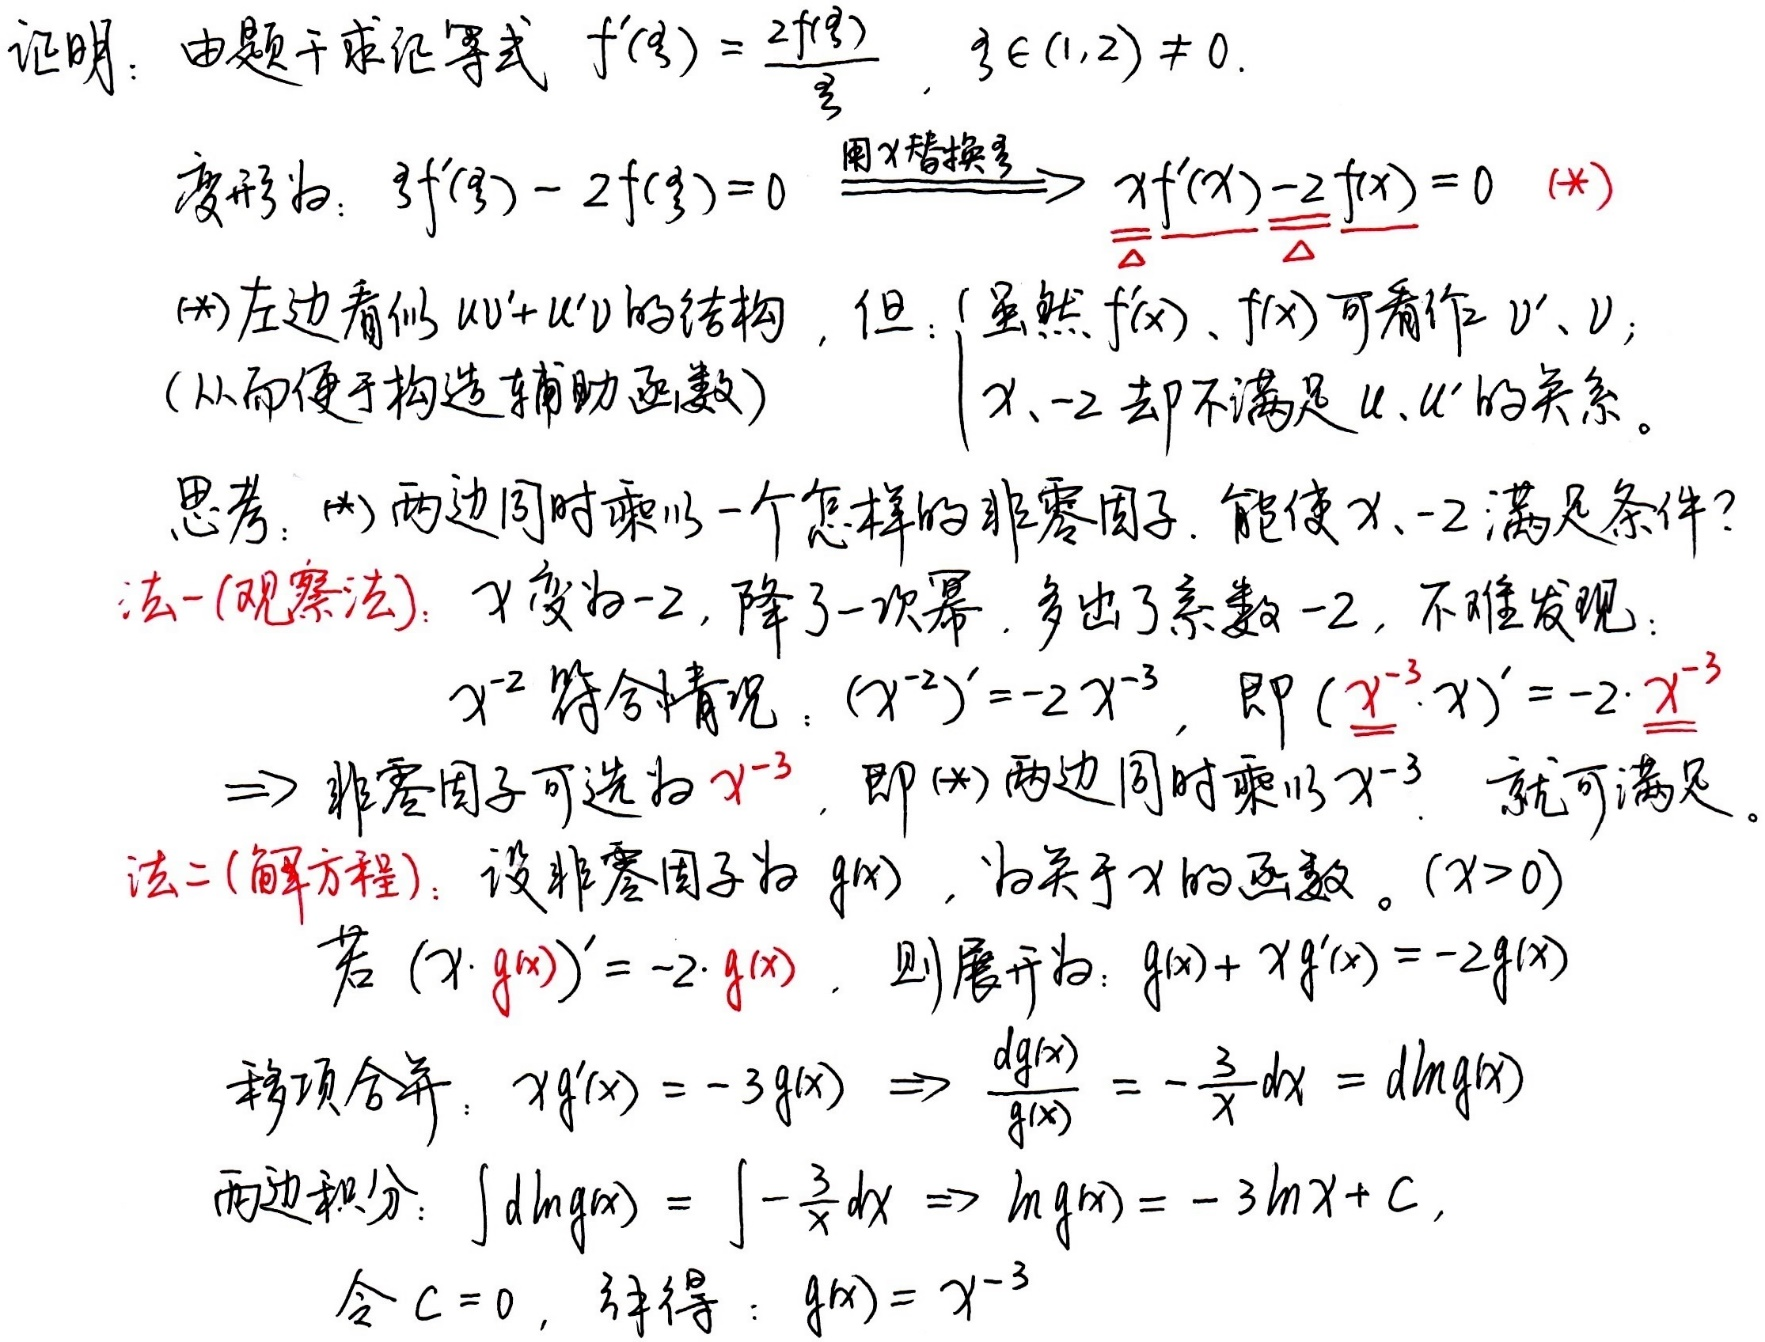 证明：由题干求证等式 f′(ξ) = 2f(ξ)/ξ ，ξ∈(1,2) ≠ 0.
变形为：ξf′(ξ) − 2f(ξ) = 0 用x替换ξ ⟹ xf′(x) − 2f(x) = 0 (*)
(*)左边看似 uv′+u′v 的结构，但：{ 虽然 f′(x)、f(x) 可看作 v′、v；
(从而便于构造辅助函数) x、−2 却不满足 u、u′ 的关系。
思考：(*)两边同时乘以一个怎样的非零因子，能使 x、−2 满足条件？
法一(观察法)：x变为−2，降了一次幂，多出了系数−2，不难发现：
x⁻² 符合情况：(x⁻²)′ = −2x⁻³，即 (x⁻³·x)′ = −2·x⁻³
⟹ 非零因子可选为 x⁻³，即(*)两边同时乘以 x⁻³，就可满足。
法二(解方程)：设非零因子为 g(x)，为关于x的函数。(x>0)
若 (x·g(x))′ = −2·g(x)，则展开为：g(x) + xg′(x) = −2g(x)
移项合并：xg′(x) = −3g(x) ⟹ dg(x)/g(x) = −3/x dx = dlng(x)
两边积分：∫dlng(x) = ∫−3/x dx ⟹ lng(x) = −3lnx + C，
令 C = 0，译得：g(x) = x⁻³